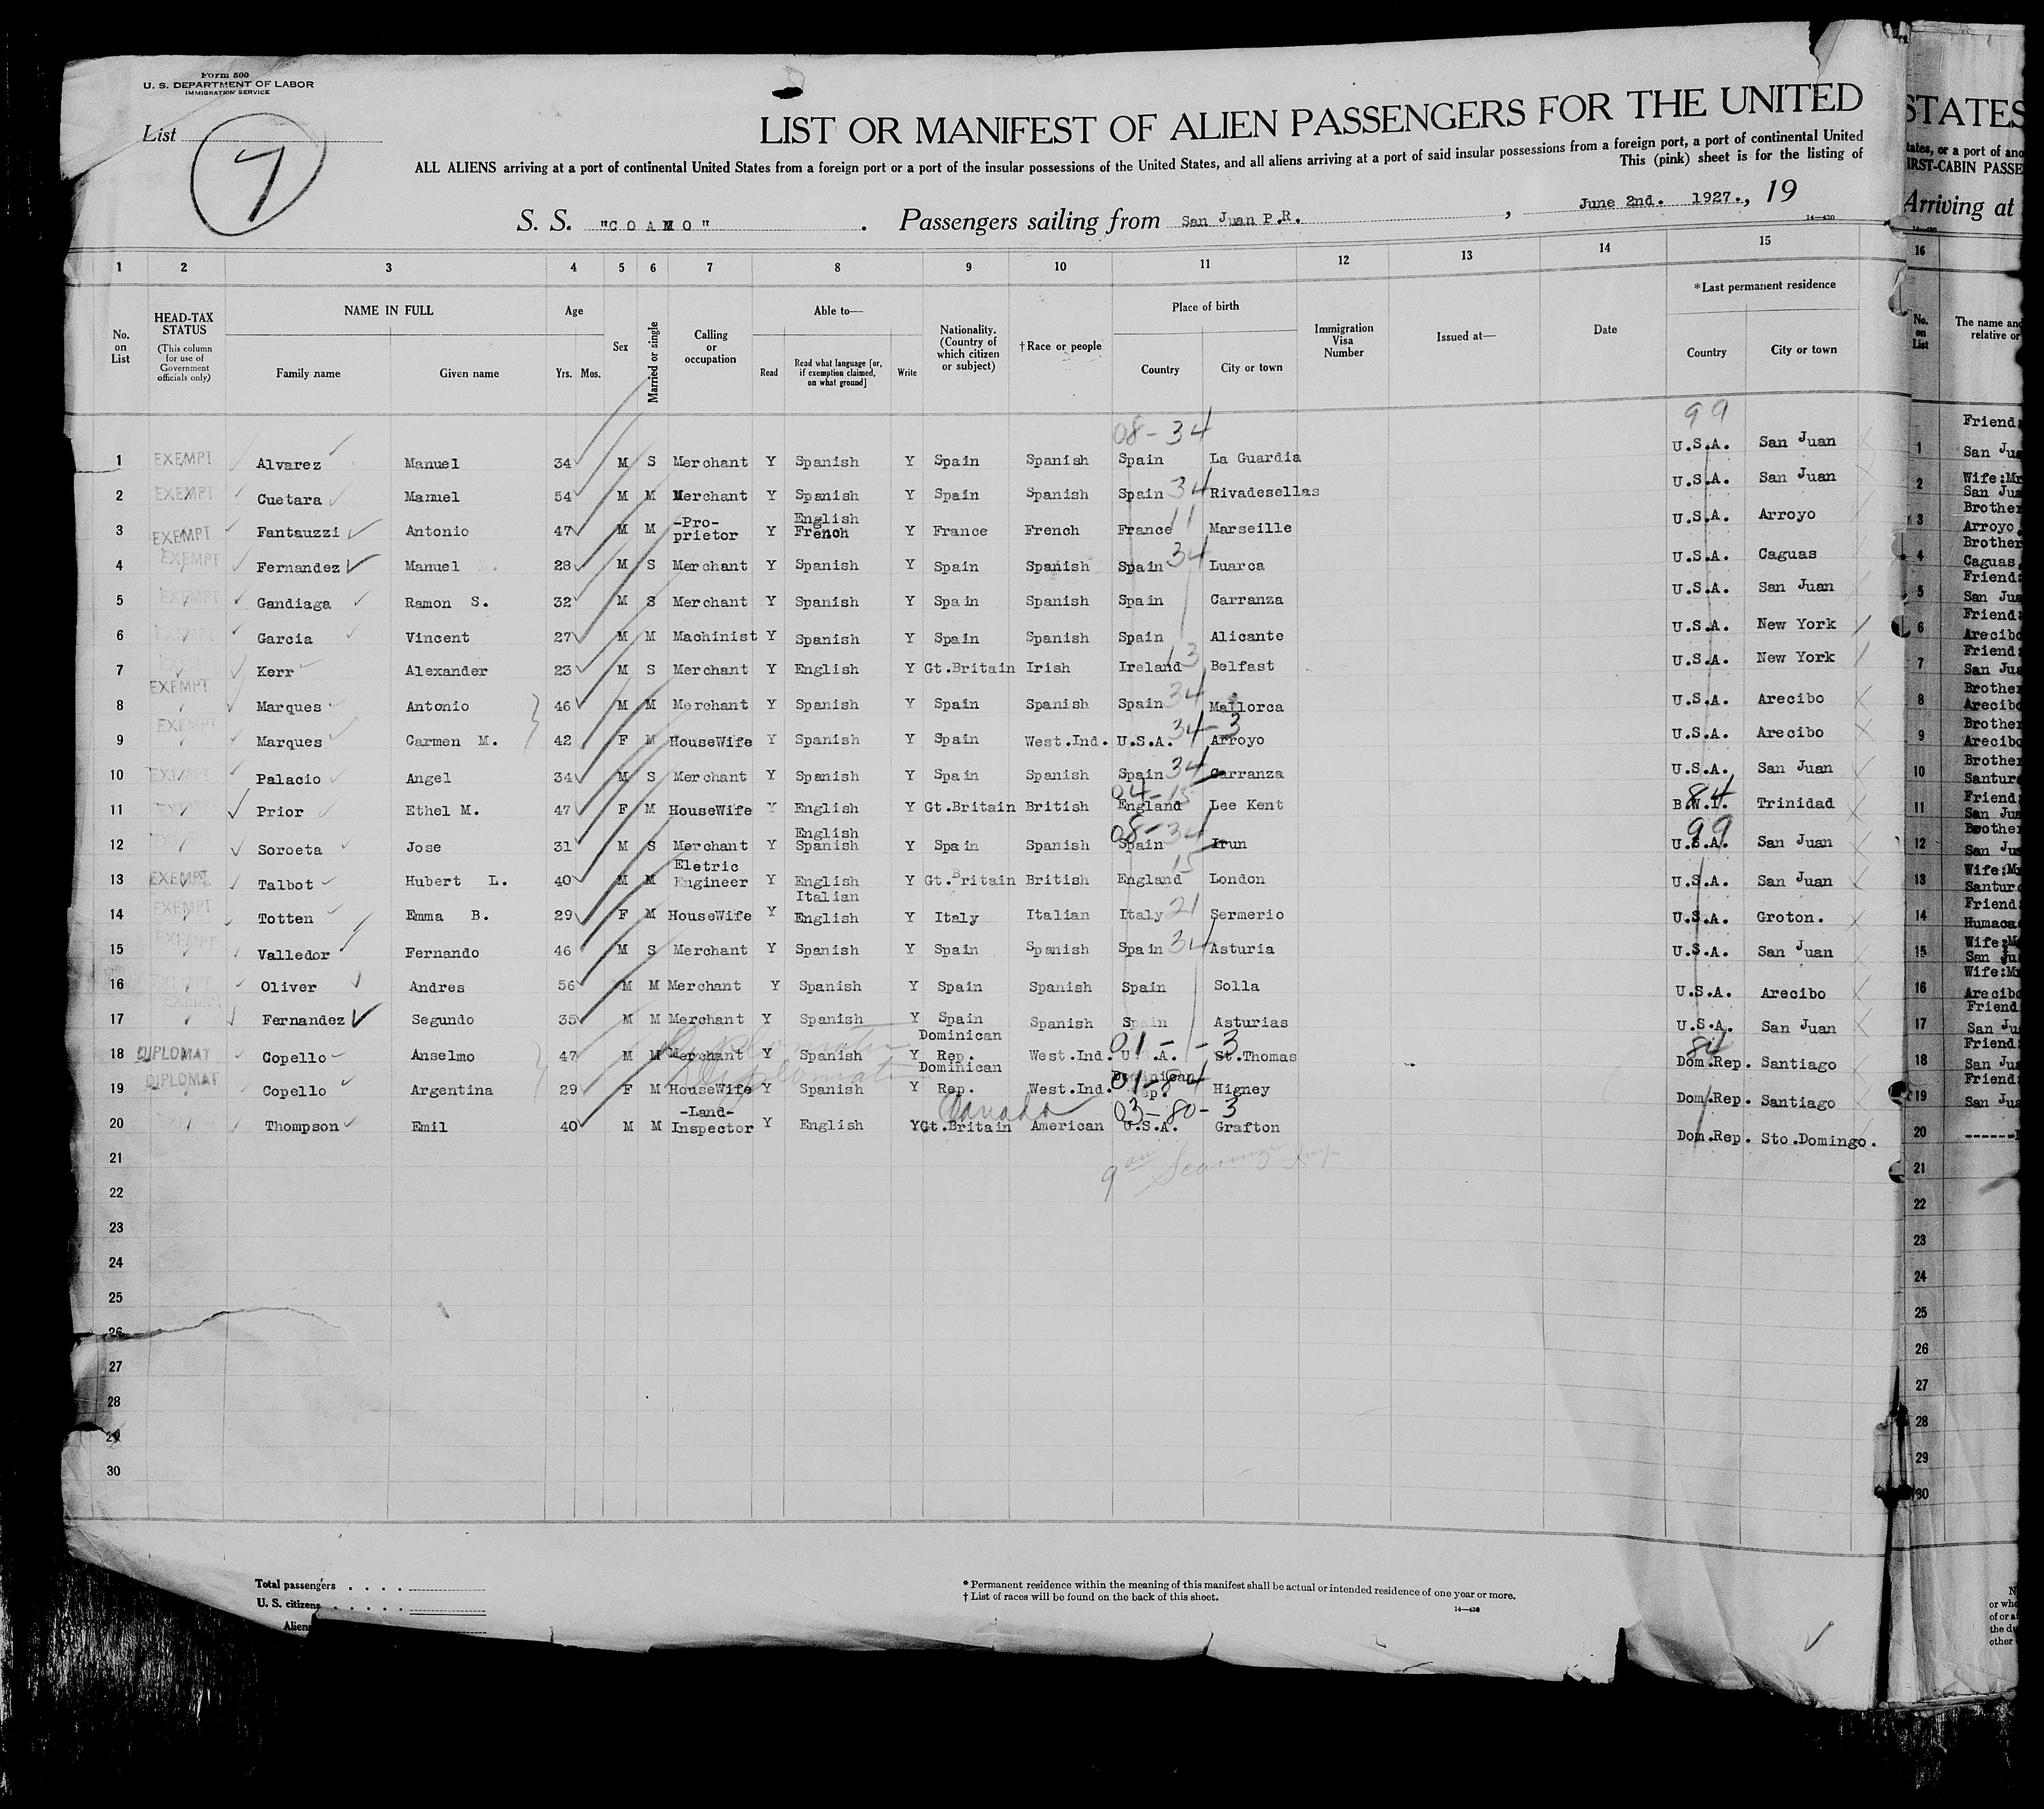 Form 500
U. S. DEPARTMENT OF LABOR
IMMIGRATION SERVICE
List 7
LIST OR MANIFEST OF ALIEN PASSENGERS FOR THE UNITED STATES
ALL ALIENS arriving at a port of continental United States from a foreign port or a port of the insular possessions of the United States, and all aliens arriving at a port of said insular possessions from a foreign port, a port of continental United
This (pink) sheet is for the listing of
S. S. "COAMO". Passengers sailing from San Juan P.R., June 2nd. 1927., 19
14—430
1 2 3 4 5 6 7 8 9 10 11 12 13 14 15
No. on List
HEAD-TAX STATUS (This column for use of Government officials only)
NAME IN FULL
Family name Given name
Age
Yrs. Mos.
Sex
Married or single
Calling or occupation
Able to—
Read Read what language [or, if exemption claimed, on what ground] Write
Nationality. (Country of which citizen or subject)
†Race or people
Place of birth
Country City or town
Immigration Visa Number
Issued at—
Date
*Last permanent residence
Country City or town
08-34 99
1 EXEMPT Alvarez Manuel 34 M S Merchant Y Spanish Y Spain Spanish Spain La Guardia U.S.A. San Juan
2 EXEMPT Cuetara Manuel 54 M M Merchant Y Spanish Y Spain Spanish Spain 34 Rivadesellas U.S.A. San Juan
3 EXEMPT Fantauzzi Antonio 47 M M -Pro-prietor Y English French Y France French France 11 Marseille U.S.A. Arroyo
4 EXEMPT Fernandez Manuel 28 M S Merchant Y Spanish Y Spain Spanish Spain 34 Luarca U.S.A. Caguas
5 EXEMPT Gandiaga Ramon S. 32 M S Merchant Y Spanish Y Spain Spanish Spain Carranza U.S.A. San Juan
6 EXEMPT Garcia Vincent 27 M M Machinist Y Spanish Y Spain Spanish Spain Alicante U.S.A. New York
7 Kerr Alexander 23 M S Merchant Y English Y Gt.Britain Irish Ireland 13 Belfast U.S.A. New York
8 EXEMPT Marques Antonio 46 M M Merchant Y Spanish Y Spain Spanish Spain 34 Mallorca U.S.A. Arecibo
9 EXEMPT Marques Carmen M. 42 F M HouseWife Y Spanish Y Spain West.Ind. U.S.A. 34-3 Arroyo U.S.A. Arecibo
10 EXEMPT Palacio Angel 34 M S Merchant Y Spanish Y Spain Spanish Spain 34 Carranza U.S.A. San Juan
11 Prior Ethel M. 47 F M HouseWife Y English Y Gt.Britain British England 04-15 Lee Kent B.W.I. 84 Trinidad
12 Soroeta Jose 31 M S Merchant Y English Spanish Y Spain Spanish Spain 08-34 Irun U.S.A. 99 San Juan
13 EXEMPT Talbot Hubert L. 40 M M Eletric Engineer Y English Y Gt.Britain British England 15 London U.S.A. San Juan
14 EXEMPT Totten Emma B. 29 F M HouseWife Y Italian English Y Italy Italian Italy 21 Sermerio U.S.A. Groton.
15 EXEMPT Valledor Fernando 46 M S Merchant Y Spanish Y Spain Spanish Spain 34 Asturia U.S.A. San Juan
16 EXEMPT Oliver Andres 56 M M Merchant Y Spanish Y Spain Spanish Spain Solla U.S.A. Arecibo
17 EXEMPT Fernandez Segundo 35 M M Merchant Y Spanish Y Spain Spanish Spain Asturias U.S.A. San Juan
18 DIPLOMAT Copello Anselmo 47 M M Merchant Y Spanish Y Dominican Rep. West.Ind. U.S.A. 01--3 St.Thomas Dom.Rep. 84 Santiago
19 DIPLOMAT Copello Argentina 29 F M HouseWife Y Spanish Y Dominican Rep. West.Ind. Dominican Rep. 01-84 Higney Dom.Rep. Santiago
20 EXEMPT Thompson Emil 40 M M -Land-Inspector Y English Y Gt.Britain Canada American U.S.A. 03-80-3 Grafton Dom.Rep. Sto.Domingo.
21
22
23
24
25
26
27
28
29
30
Total passengers . . . .
U. S. citizens . . . . .
Aliens
* Permanent residence within the meaning of this manifest shall be actual or intended residence of one year or more.
† List of races will be found on the back of this sheet.
14—430
STATES
tates, or a port of ano
IRST-CABIN PASSE
Arriving at
16
No. on List
The name and
relative or
Friend
1 San Jua
Wife:Mr
2 San Jua
Brother
3 Arroyo.
Brother
4 Caguas
Friend
5 San Jua
Friend
6 Arecibo
Friend
7 San Jua
Brother
8 Arecibo
Brother
9 Arecibo
Brother
10 Santurc
Friend
11 San Jua
Brother
12 San Jua
Wife:Mr
13 Santurc
Friend
14 Humaca
Wife:M
15 San Ju
Wife:Mr
16 Arecibo
Friend
17 San Ju
Friend
18 San Ju
Friend
19 San Ju
20 ------
21
22
23
24
25
26
27
28
29
30
or who
of or a
the du
other